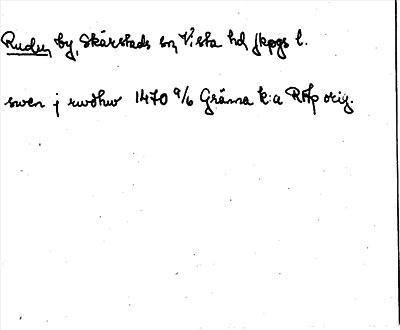 Rudu, by, Skärstads sn, Vista hd, Jkpgs l.
swen j rwdhw 1470 9/6 Gränna k:a RAp orig.